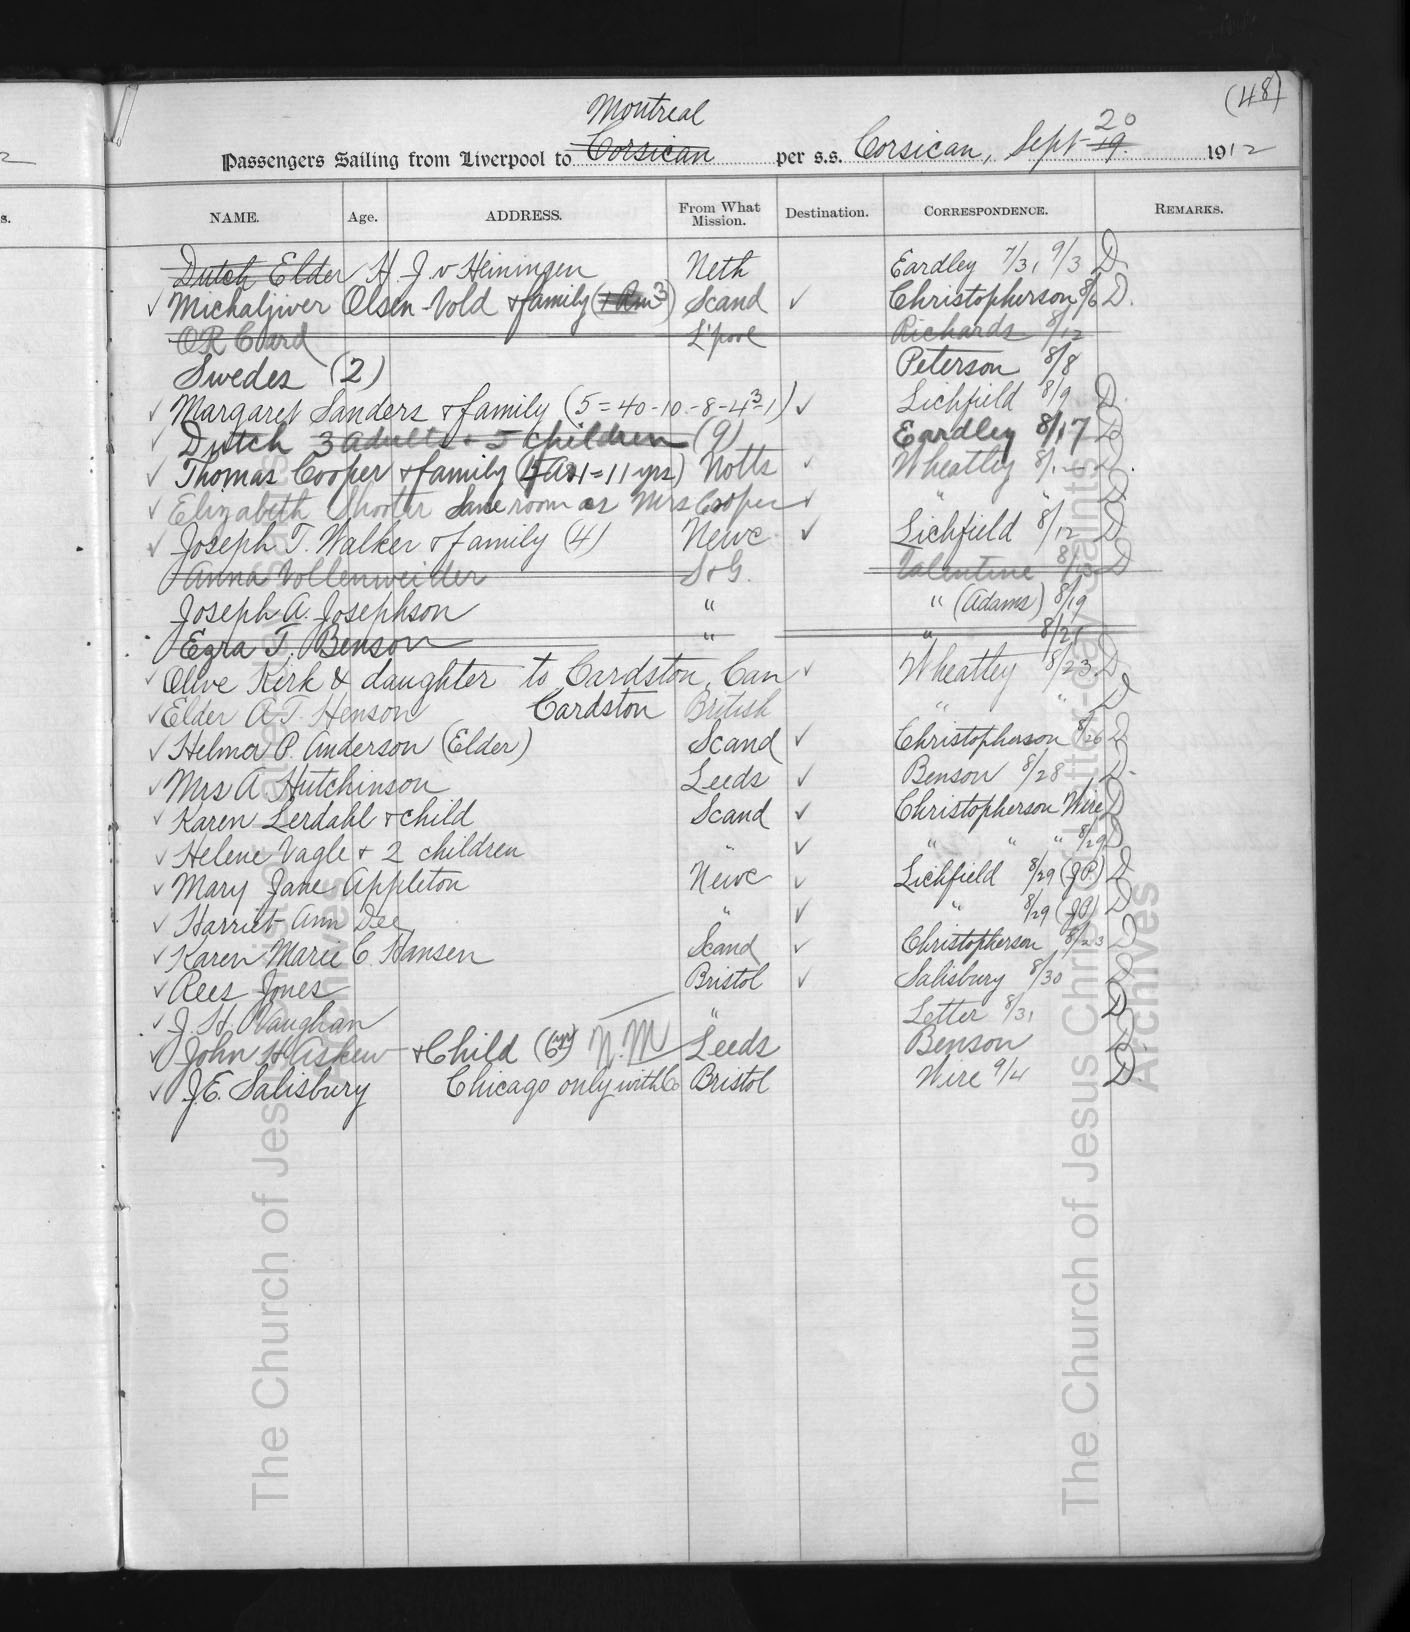 (48)
Montreal
Passengers Sailing from Liverpool to Corsican per s.s. Corsican, Sept 19. 20 1912
NAME. Age. ADDRESS. From What Mission. Destination. CORRESPONDENCE. REMARKS.
Dutch Elder H. J. v Heiningen Neth Eardley 7/31, 9/3 D.
✓ Michaljiver Olsen-Vold & family ( 3) Scand ✓ Christopherson 8/6 D.
L'pool Richards 8/12
Swedes (2) Peterson 8/8
✓ Margaret Sanders & family (5=40-10-8-4 3-1) ✓ Lichfield 8/9 D.
✓ Dutch 3 adults + 5 children (9) Eardley 8/17 D
✓ Thomas Cooper & family ( =11 yrs) Notts ✓ Wheatley D.
✓ Elizabeth Shooter Same room as Mrs Cooper ✓ " " D
✓ Joseph T. Walker & family (4) Newc. ✓ Lichfield 8/12 D
Anna Vollenweider S&G. Valentine 8/13 D
Joseph A. Josephson " " (Adams) 8/19
Ezra T. Benson " " 8/21
✓ Olive Kirk & daughter to Cardston, Can ✓ Wheatley 8/23. D
✓ Elder A.T. Henson Cardston British " " D
✓ Helmer P. Anderson (Elder) Scand ✓ Christopherson 8/26 D
✓ Mrs A. Hutchinson Leeds ✓ Benson 8/28 D.
✓ Karen Lerdahl & child Scand ✓ Christopherson Wire D
✓ Helene Vagle & 2 children " ✓ " " " 8/29 D
✓ Mary Jane Appleton Newc ✓ Lichfield 8/29 (JP) D
✓ Harriet Ann Dee " ✓ " 8/29 (JP) D
✓ Karen Marie C. Hansen Scand ✓ Christopherson 8/23 D
✓ Rees Jones Bristol ✓ Salisbury 8/30 D
✓ J. H. Vaughan " Letter 8/31 D
✓ John H Askew & Child (6 yr) N.M Leeds Benson D
✓ J.E. Salisbury Chicago only with Co Bristol Wire 9/4 D.
The Church of Jesus Christ of Latter-day Saints
Archives
The Church of Jesus Christ of Latter-day Saints
Archives